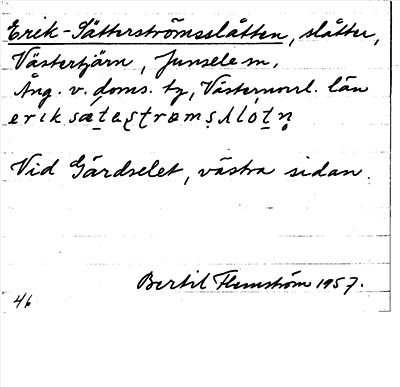 Erik-Sätterströmsslåtten, slåtter,
Västertjärn, Junsele sn,
Ång. v. doms. tg, Västernorrl. län
Vid Gärdselet, västra sidan.
Bertil Flemström 1957.
46